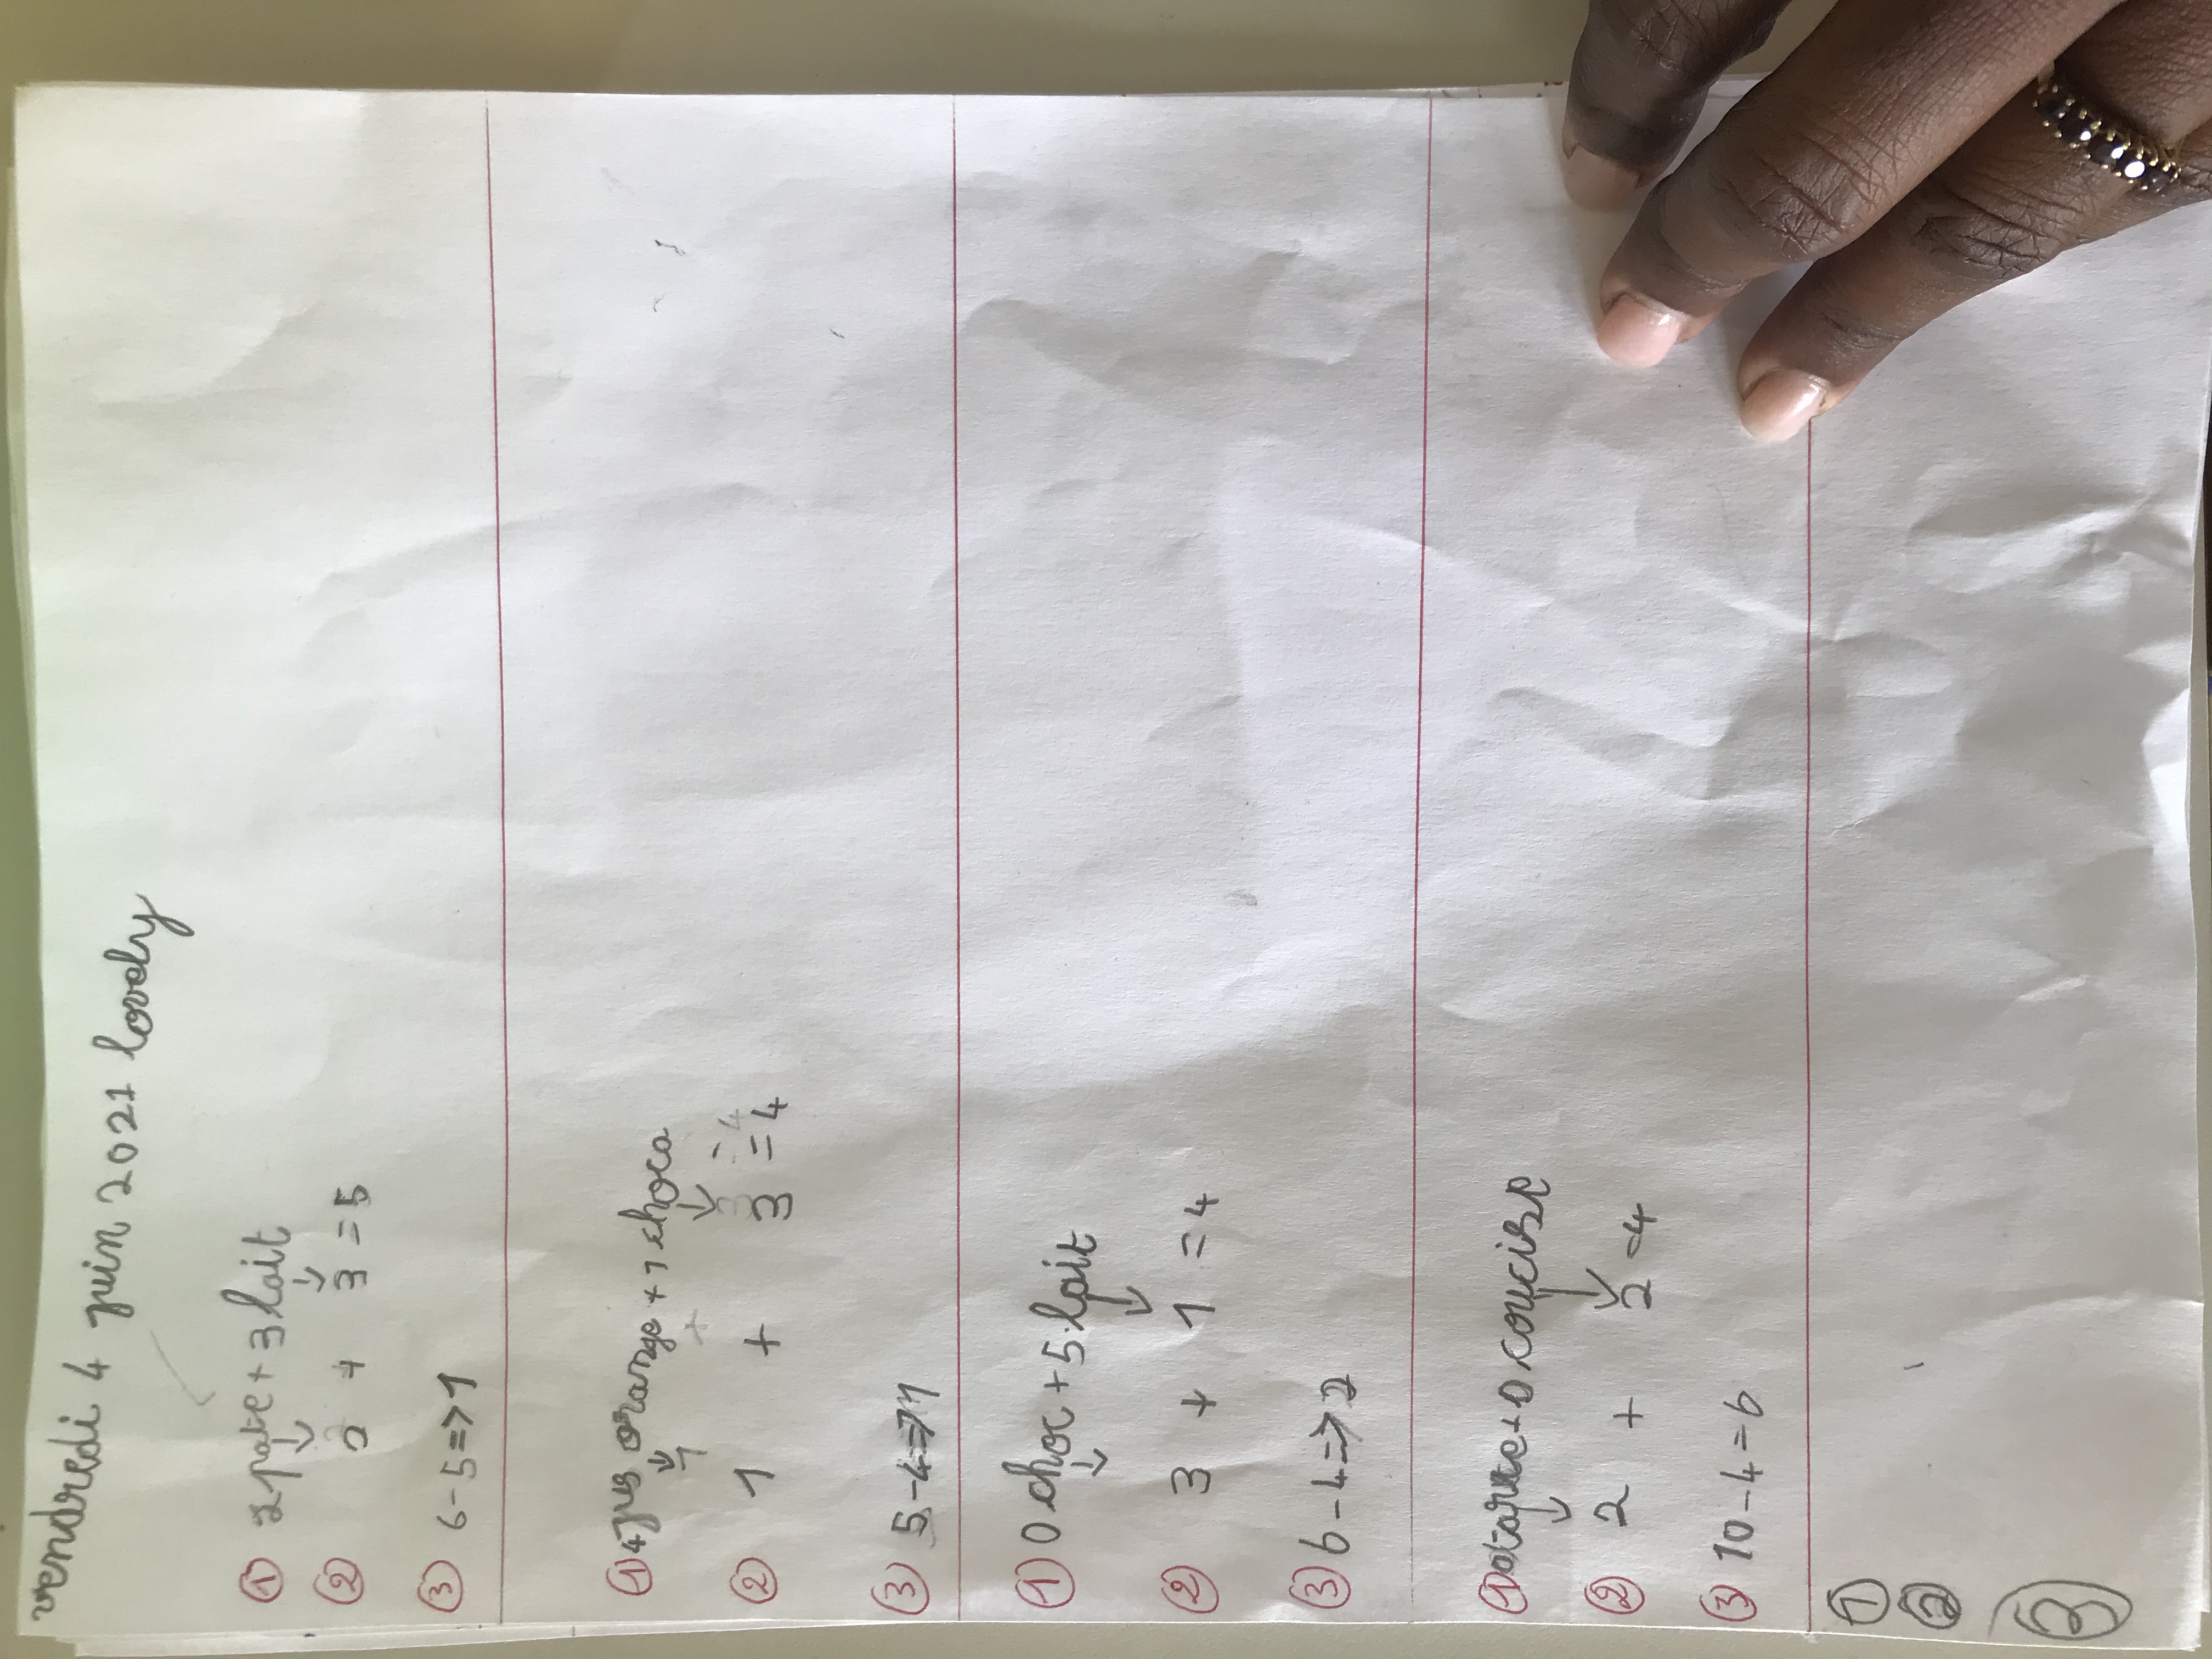 vendredi 4 juin 2021 lovely
① 2 pate + 3 lait
↓ ↓
② 2 + 3 = 5
③ 6 - 5 => 1
① 4 jus orange + 1 choco
↓ ↓
② 1 + 3 = 4
③ 5 - 4 => 1
① 0 choc + 5 lait
↓ ↓
② 3 + 1 = 4
③ 6 - 4 => 2
①
↓ ↓
② 2 + 2 = 4
③ 10 - 4 = 6
①
②
③